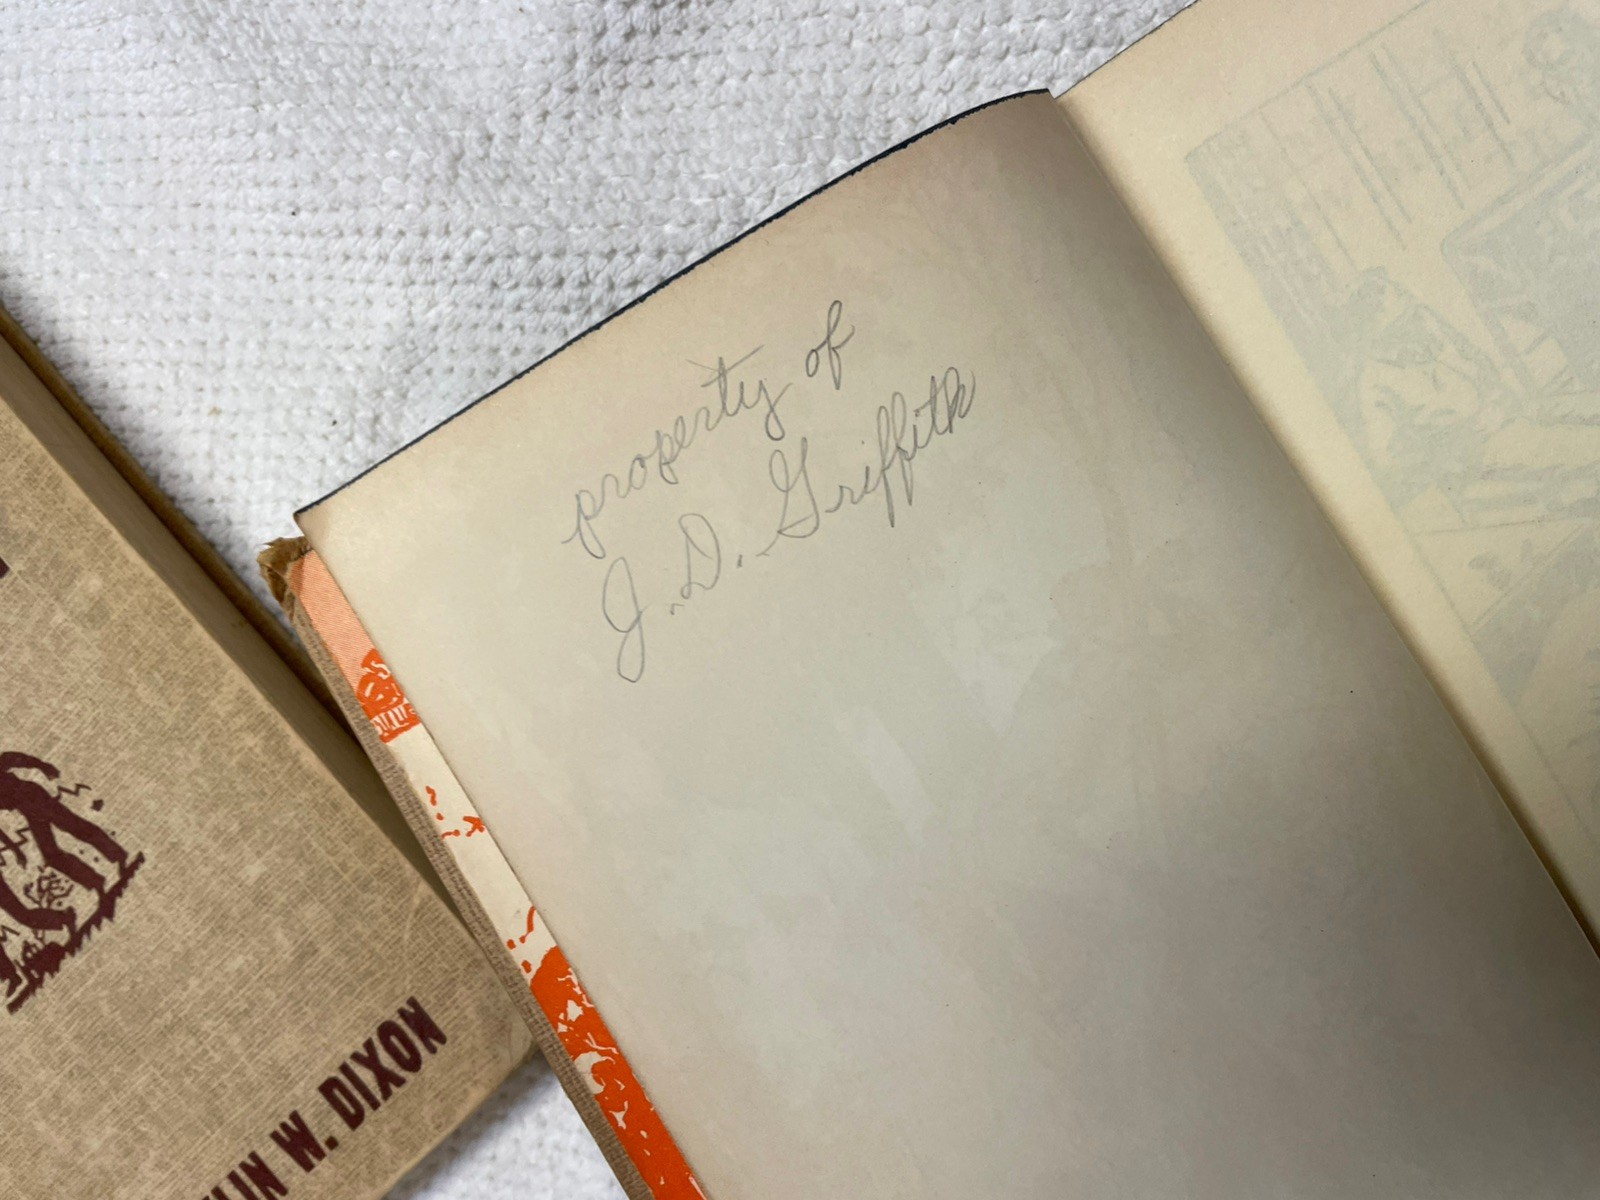 property of
J. D. Griffith
W. DIXON